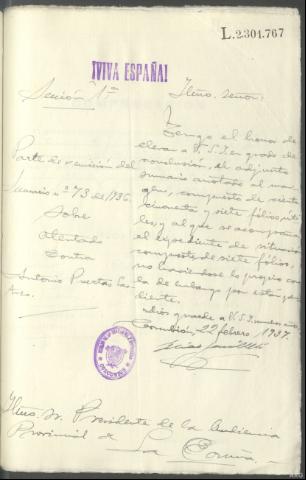 L.2301.767
¡VIVA ESPAÑA!
Sección 1ª
Ilmo. señor:
Tengo el honor de
elevar a V.S.I. en grado de
conclusión, el adjunto
sumario anotado al mar-
gen, compuesto de ciento
cincuenta y siete fólios, úti-
les, y al que se acompaña
el expediente de situación
compuesto de siete fólios,
no haciéndose lo propio con
la de embargo por estar pen-
diente.
Dios guarde a V.S.I. muchos años.
Corcubión, 22 febrero 1937.
Parte de remisión del
sumario nº 73 de 1936
sobre
Atentado
contra
Antonio Puertas
Ilmo. Sr. Presidente de la Audiencia
Provincial de
La Coruña.-